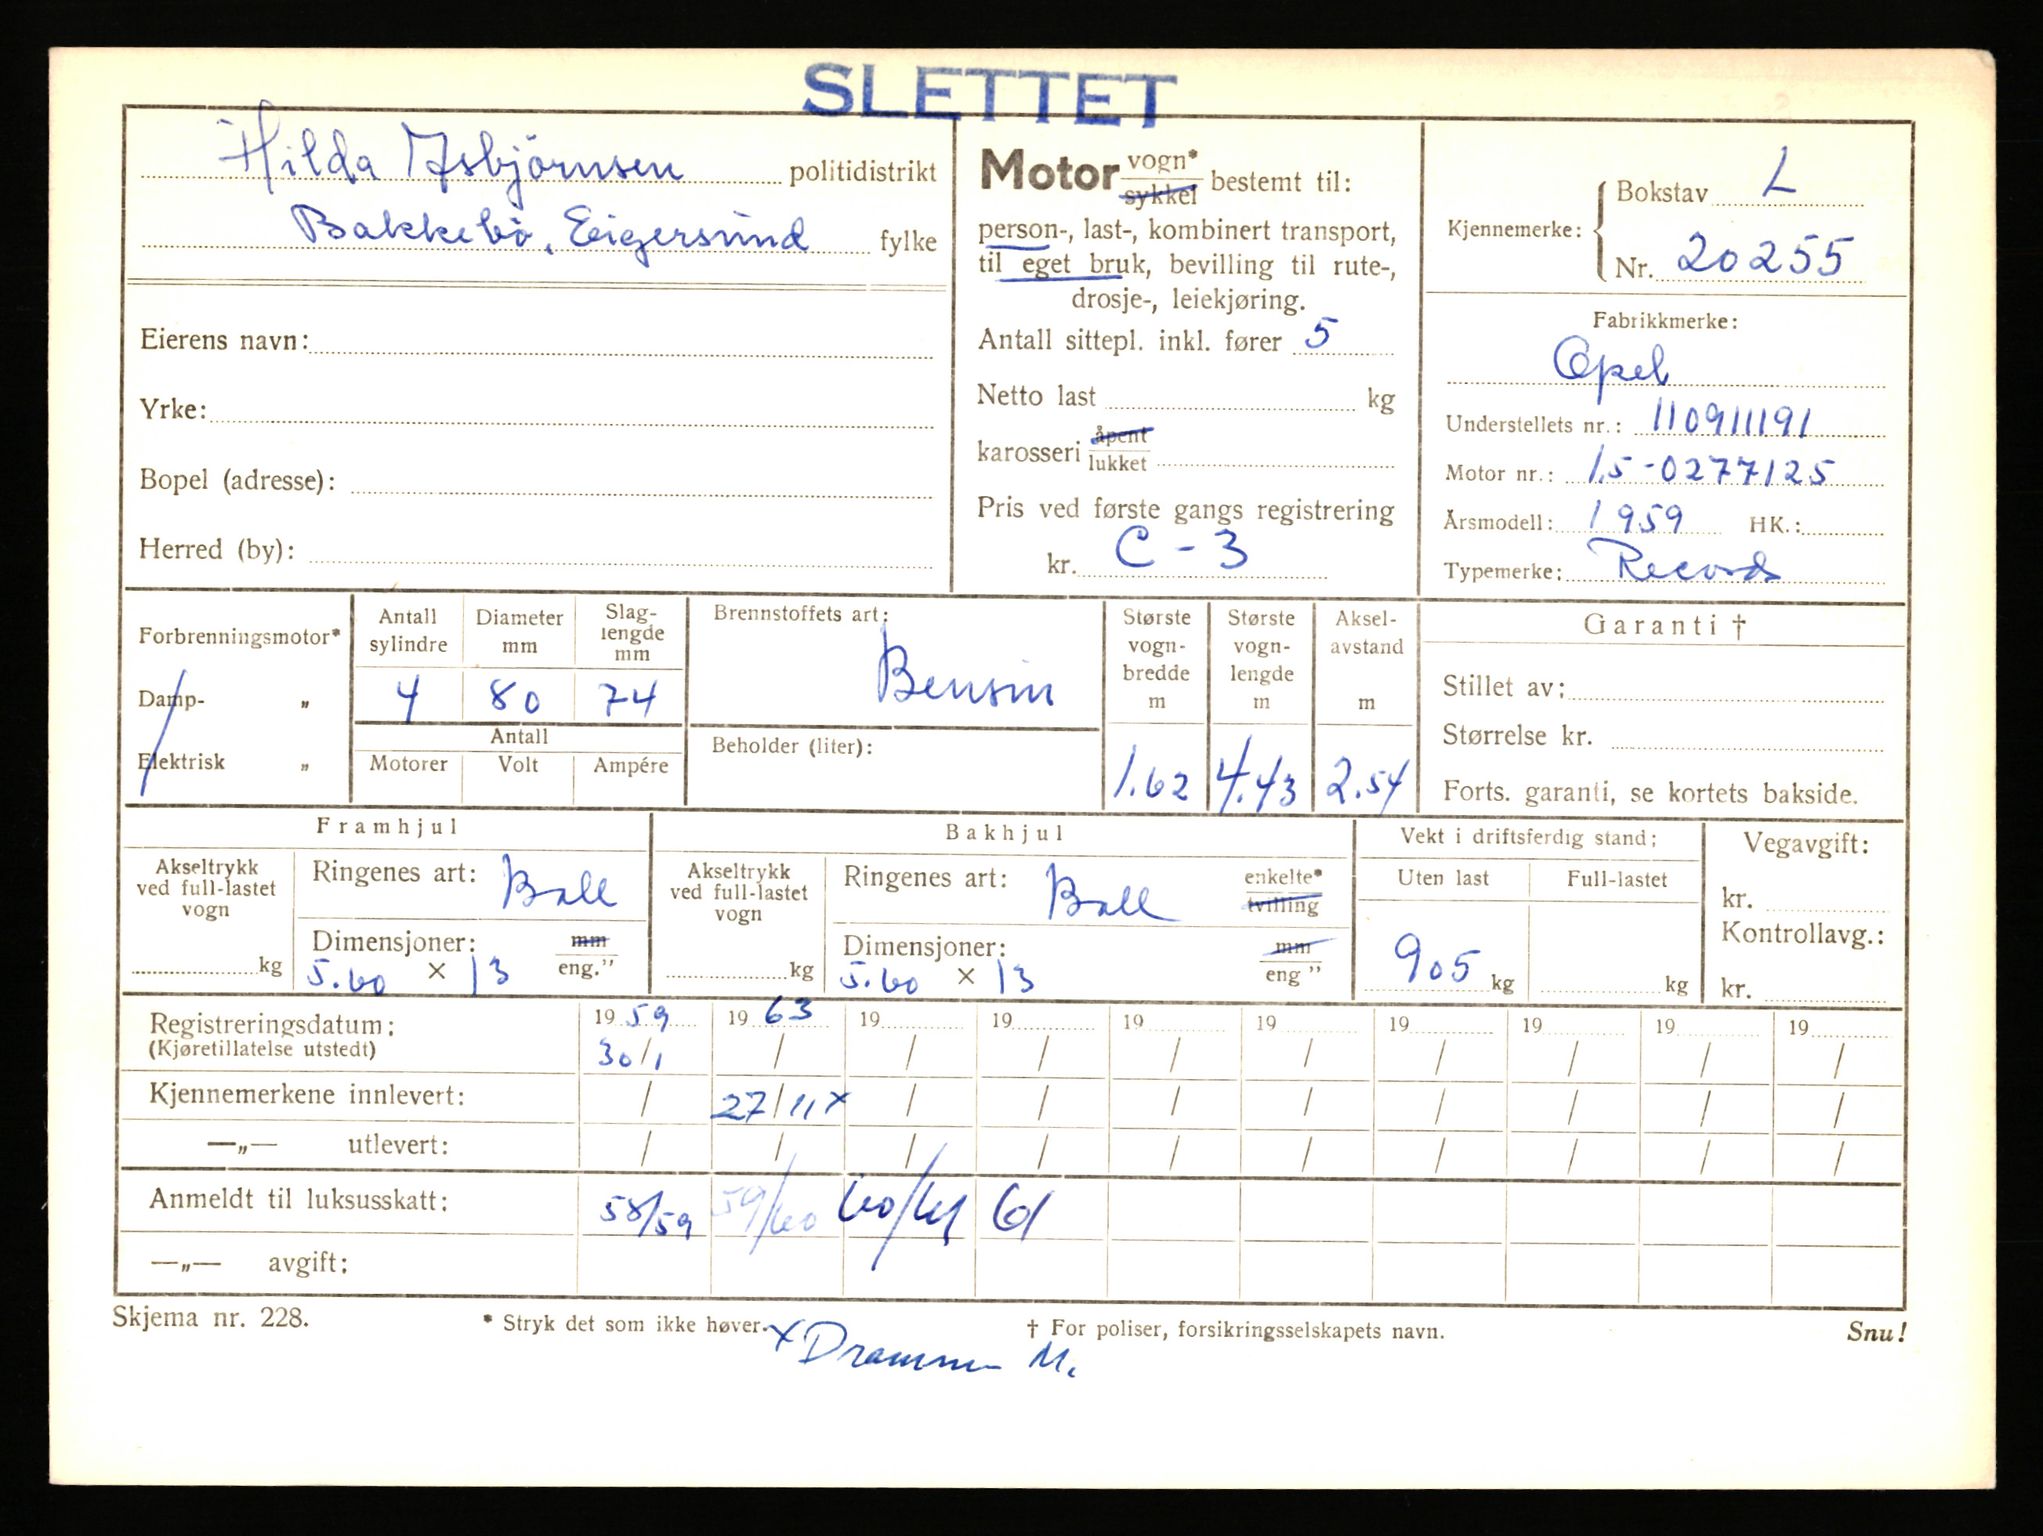 SLETTET
Hilda Asbjörnsen politidistrikt
Bakkebö, Eigersund fylke
Eierens navn:
Yrke:
Bopel (adresse):
Herred (by):
Motor vogn* sykkel bestemt til:
person-, last-, kombinert transport,
til eget bruk, bevilling til rute-,
drosje-, leiekjøring.
Antall sittepl. inkl. fører 5
Netto last kg
karosseri åpent lukket
Pris ved første gangs registrering
kr. C-3
Kjennemerke: Bokstav L
Nr. 20255
Fabrikkmerke:
Opel
Understellets nr.: 110911191
Motor nr.: 1,5-0277125
Årsmodell: 1959 HK.:
Typemerke: Record
Forbrenningsmotor*
Damp- „
Elektrisk „
Antall sylindre Diameter mm Slag-lengde mm
4 80 74
Antall
Motorer Volt Ampére
Brennstoffets art:
Bensin
Beholder (liter):
Største vogn-bredde m
1.62
Største vogn-lengde m
4.43
Aksel-avstand m
2.54
Garanti †
Stillet av:
Størrelse kr.
Forts. garanti, se kortets bakside.
Framhjul
Akseltrykk ved full-lastet vogn
kg
Ringenes art: Ball
Dimensjoner: mm eng."
5.60 × 13
Bakhjul
Akseltrykk ved full-lastet vogn
kg
Ringenes art: Ball enkelte* tvilling
Dimensjoner: mm eng"
5.60 × 13
Vekt i driftsferdig stand:
Uten last Full-lastet
905 kg kg
Vegavgift:
kr.
Kontrollavg.:
kr.
Registreringsdatum: 1959 1963 19 19 19 19 19 19 19 19
(Kjøretillatelse utstedt) 30/1 / / / / / / / / /
Kjennemerkene innlevert: / 27/11 x / / / / / / / /
—„— utlevert: / / / / / / / / / /
Anmeldt til luksusskatt: 58/59 59/60 60/61 61
—„— avgift:
Skjema nr. 228. * Stryk det som ikke høver. † For poliser, forsikringsselskapets navn. Snu!
x Drammen M.